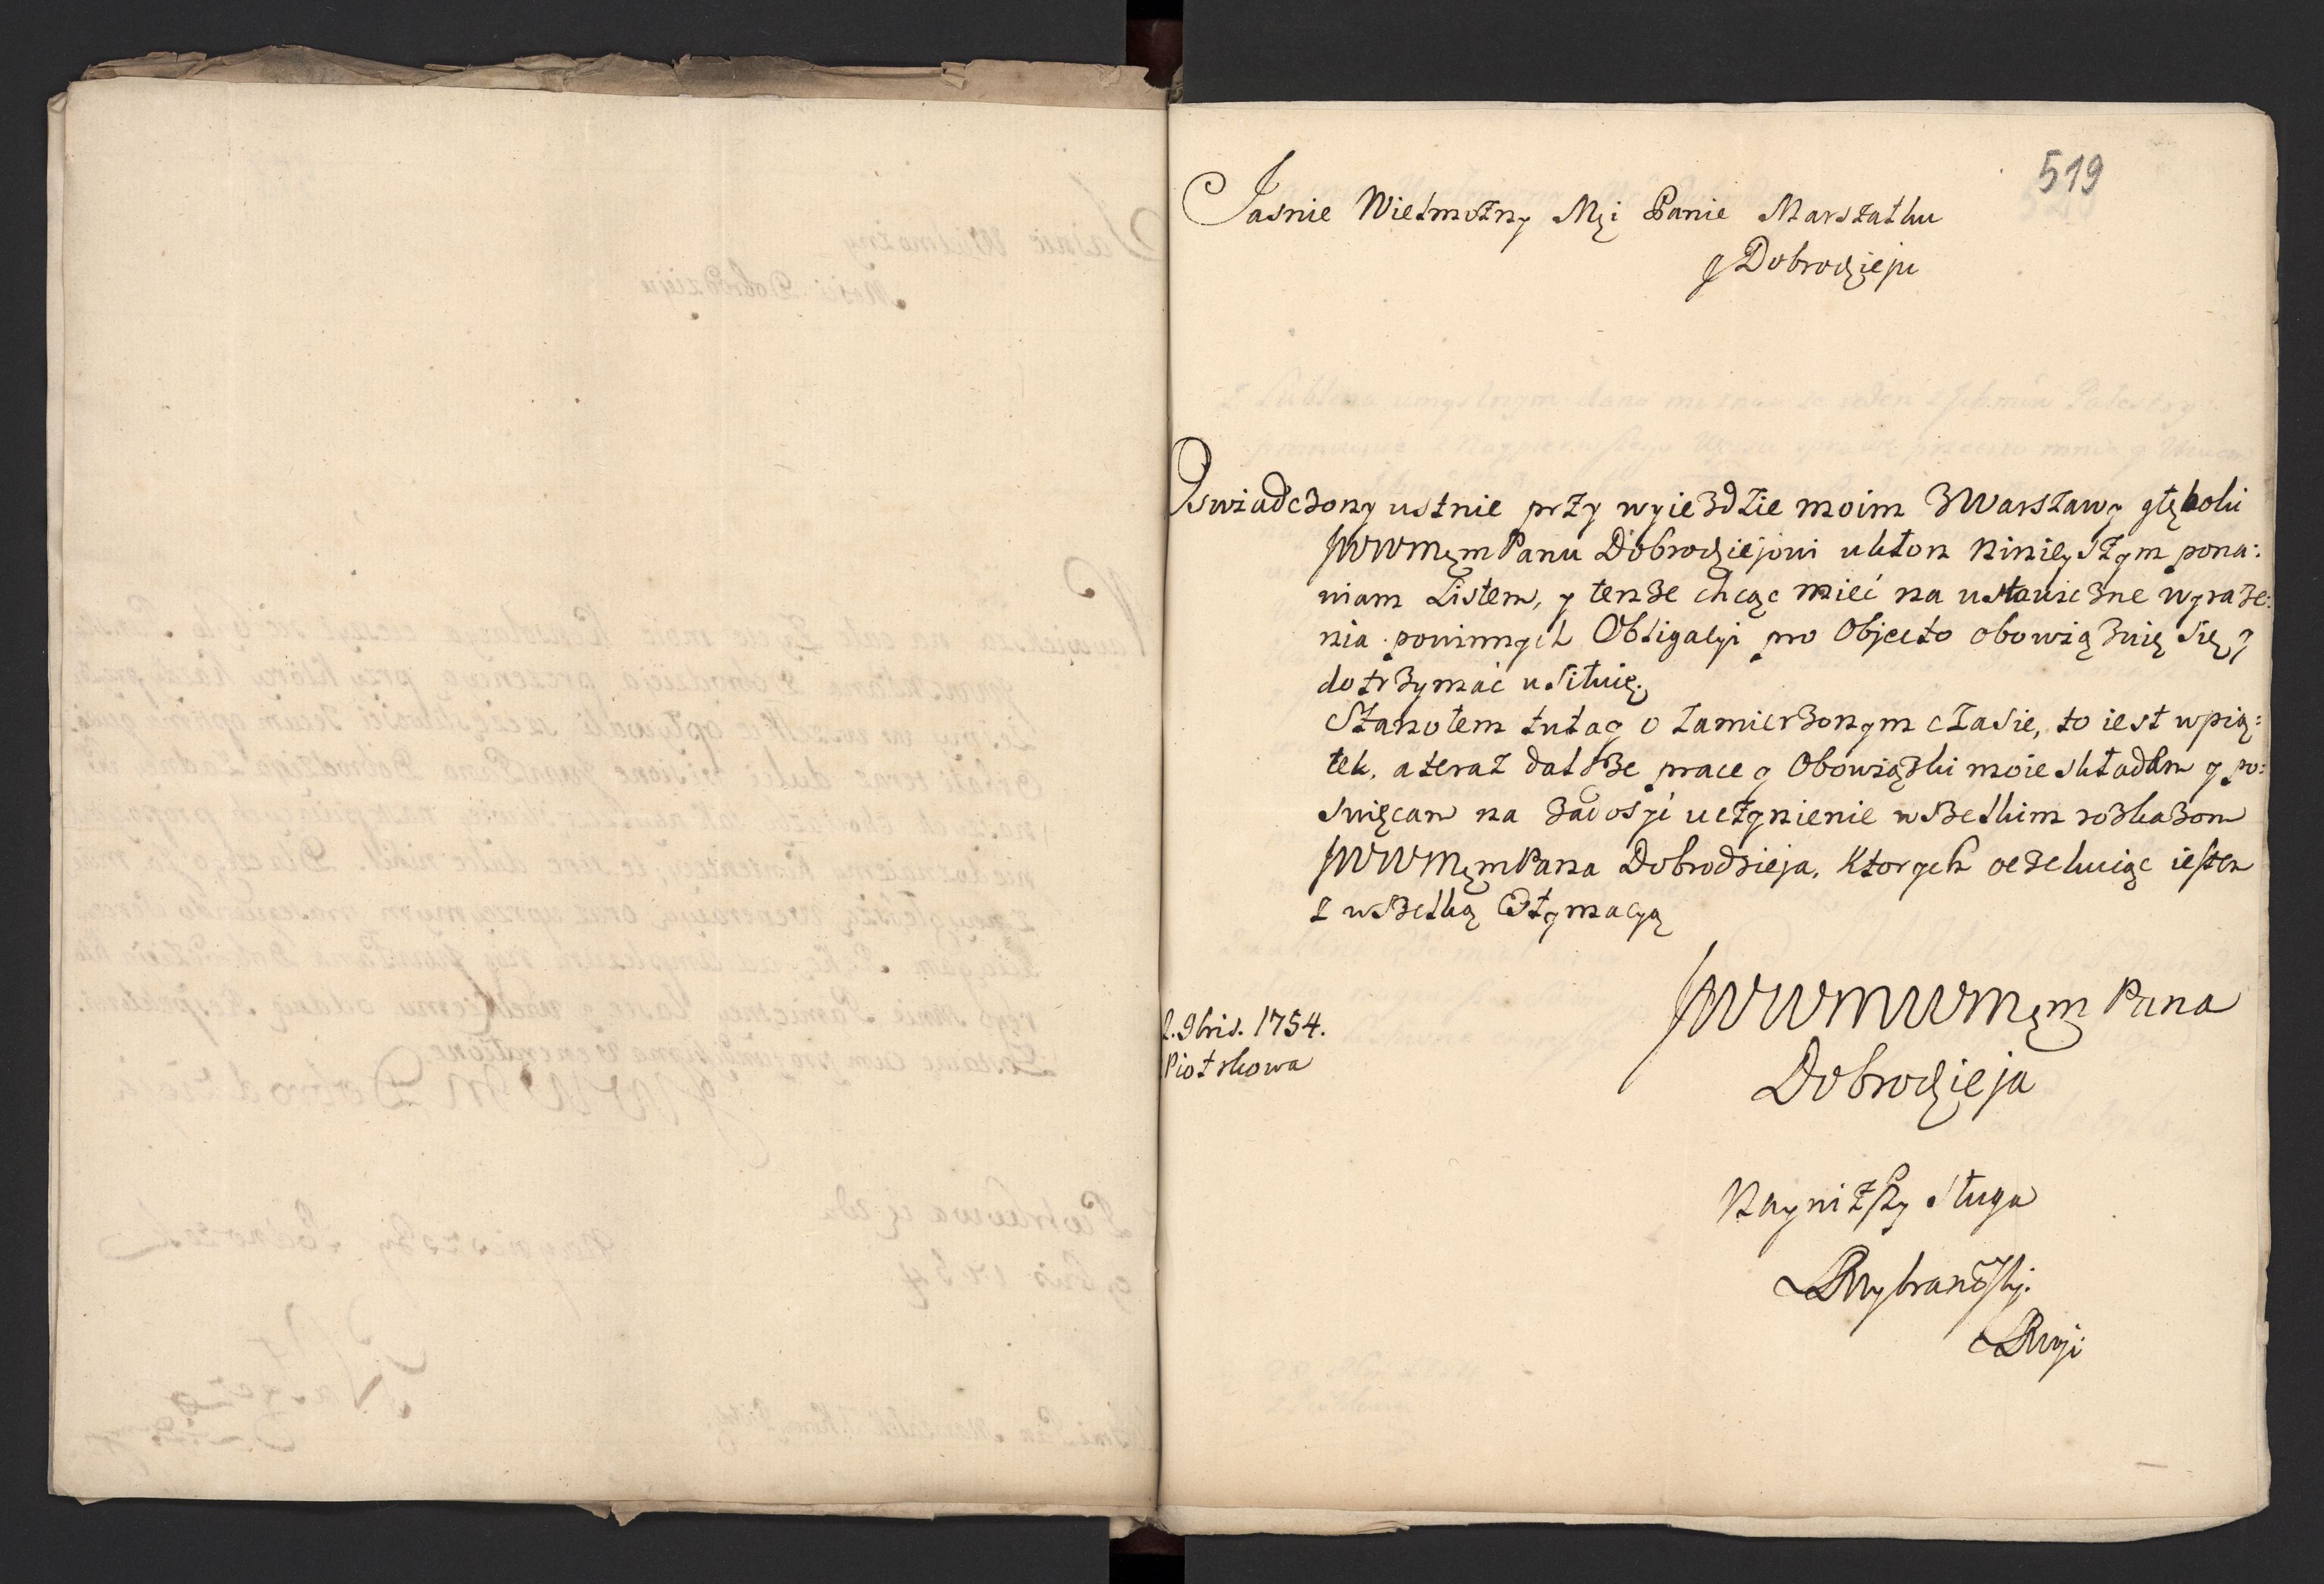 519
Jasnie Wielmozny Mci Panie Marszałku
y Dobrodzieju
Oswiadczony ustnie przy wyiezdzie moim z Warszawy głęboki
JWWMcmPanu Dobrodziejowi ukłon ninieyszym pona:
wiam Listem, y tenze chcąc mieć na ustawiczne wyraze:
nia powinnych Obligacyi pro Objecto obowiązuię się y
dotrzymać usiłuię.
Stanołem tutay o zamierzonym czasie, to iest w pią:
tek, a teraz dalsze prace y Obowiązki moie składam y po:
swięcam na zadosyć uczynienie wszelkim rozkazom
JWWMcmPana Dobrodzieja, Ktorych oczekuiąc iestem
z wszelką Estymacyą
JWWMWMcm Pana
Dobrodzieja
2. 9bris. 1754.
Piotrkowa
Nayniższy sługa